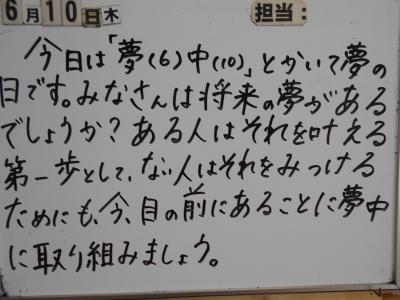 6月10日木 担当:
今日は「夢(6)中(10)」とかいて夢の
日です。みなさんは将来の夢がある
でしょうか?ある人はそれを叶える
第一歩として、ない人はそれをみつける
ためにも、今、目の前にあることに夢中
に取り組みましょう。